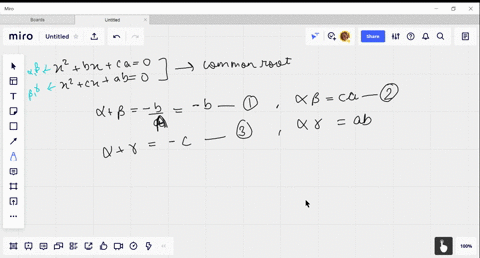 Miro
Boards Untitled
miro Untitled Share
α,β ← x² + bx + ca = 0
β,γ ← x² + cx + ab = 0 ] → common root
α + β = -b/ = -b — ① , αβ = ca — ②
α + γ = -c — ③ , αγ = ab
100%